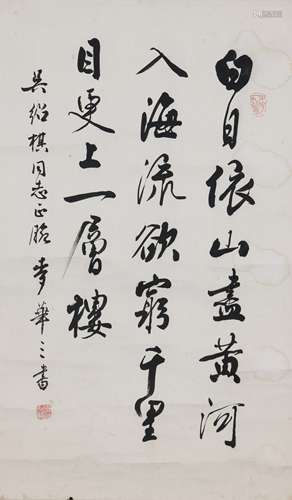 白日依山盡黃河
入海流欲窮千里
目更上一層樓
吳紹棋同志正腕 麥華三書